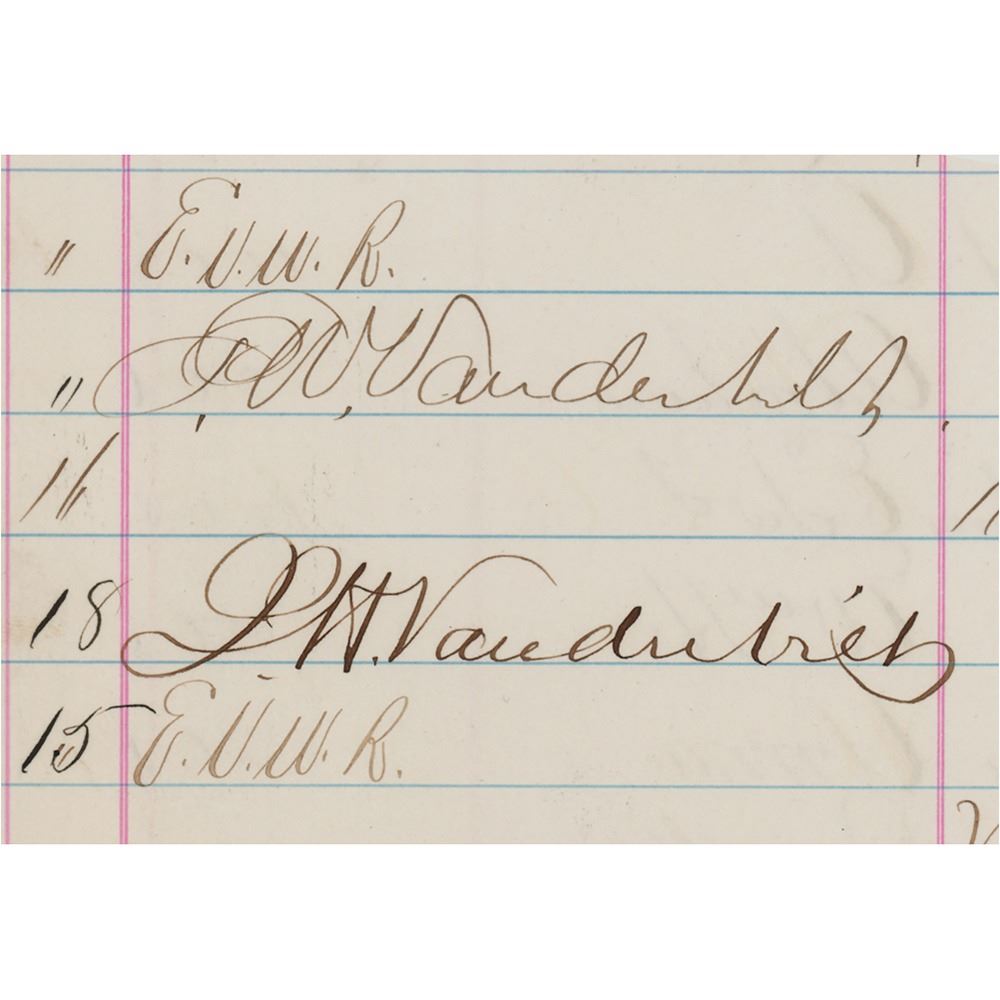 " E. V. W. R.
" P. W. Vanderbilt,
16
18 P. H. Vanderbilt
15 E. V. W. R.